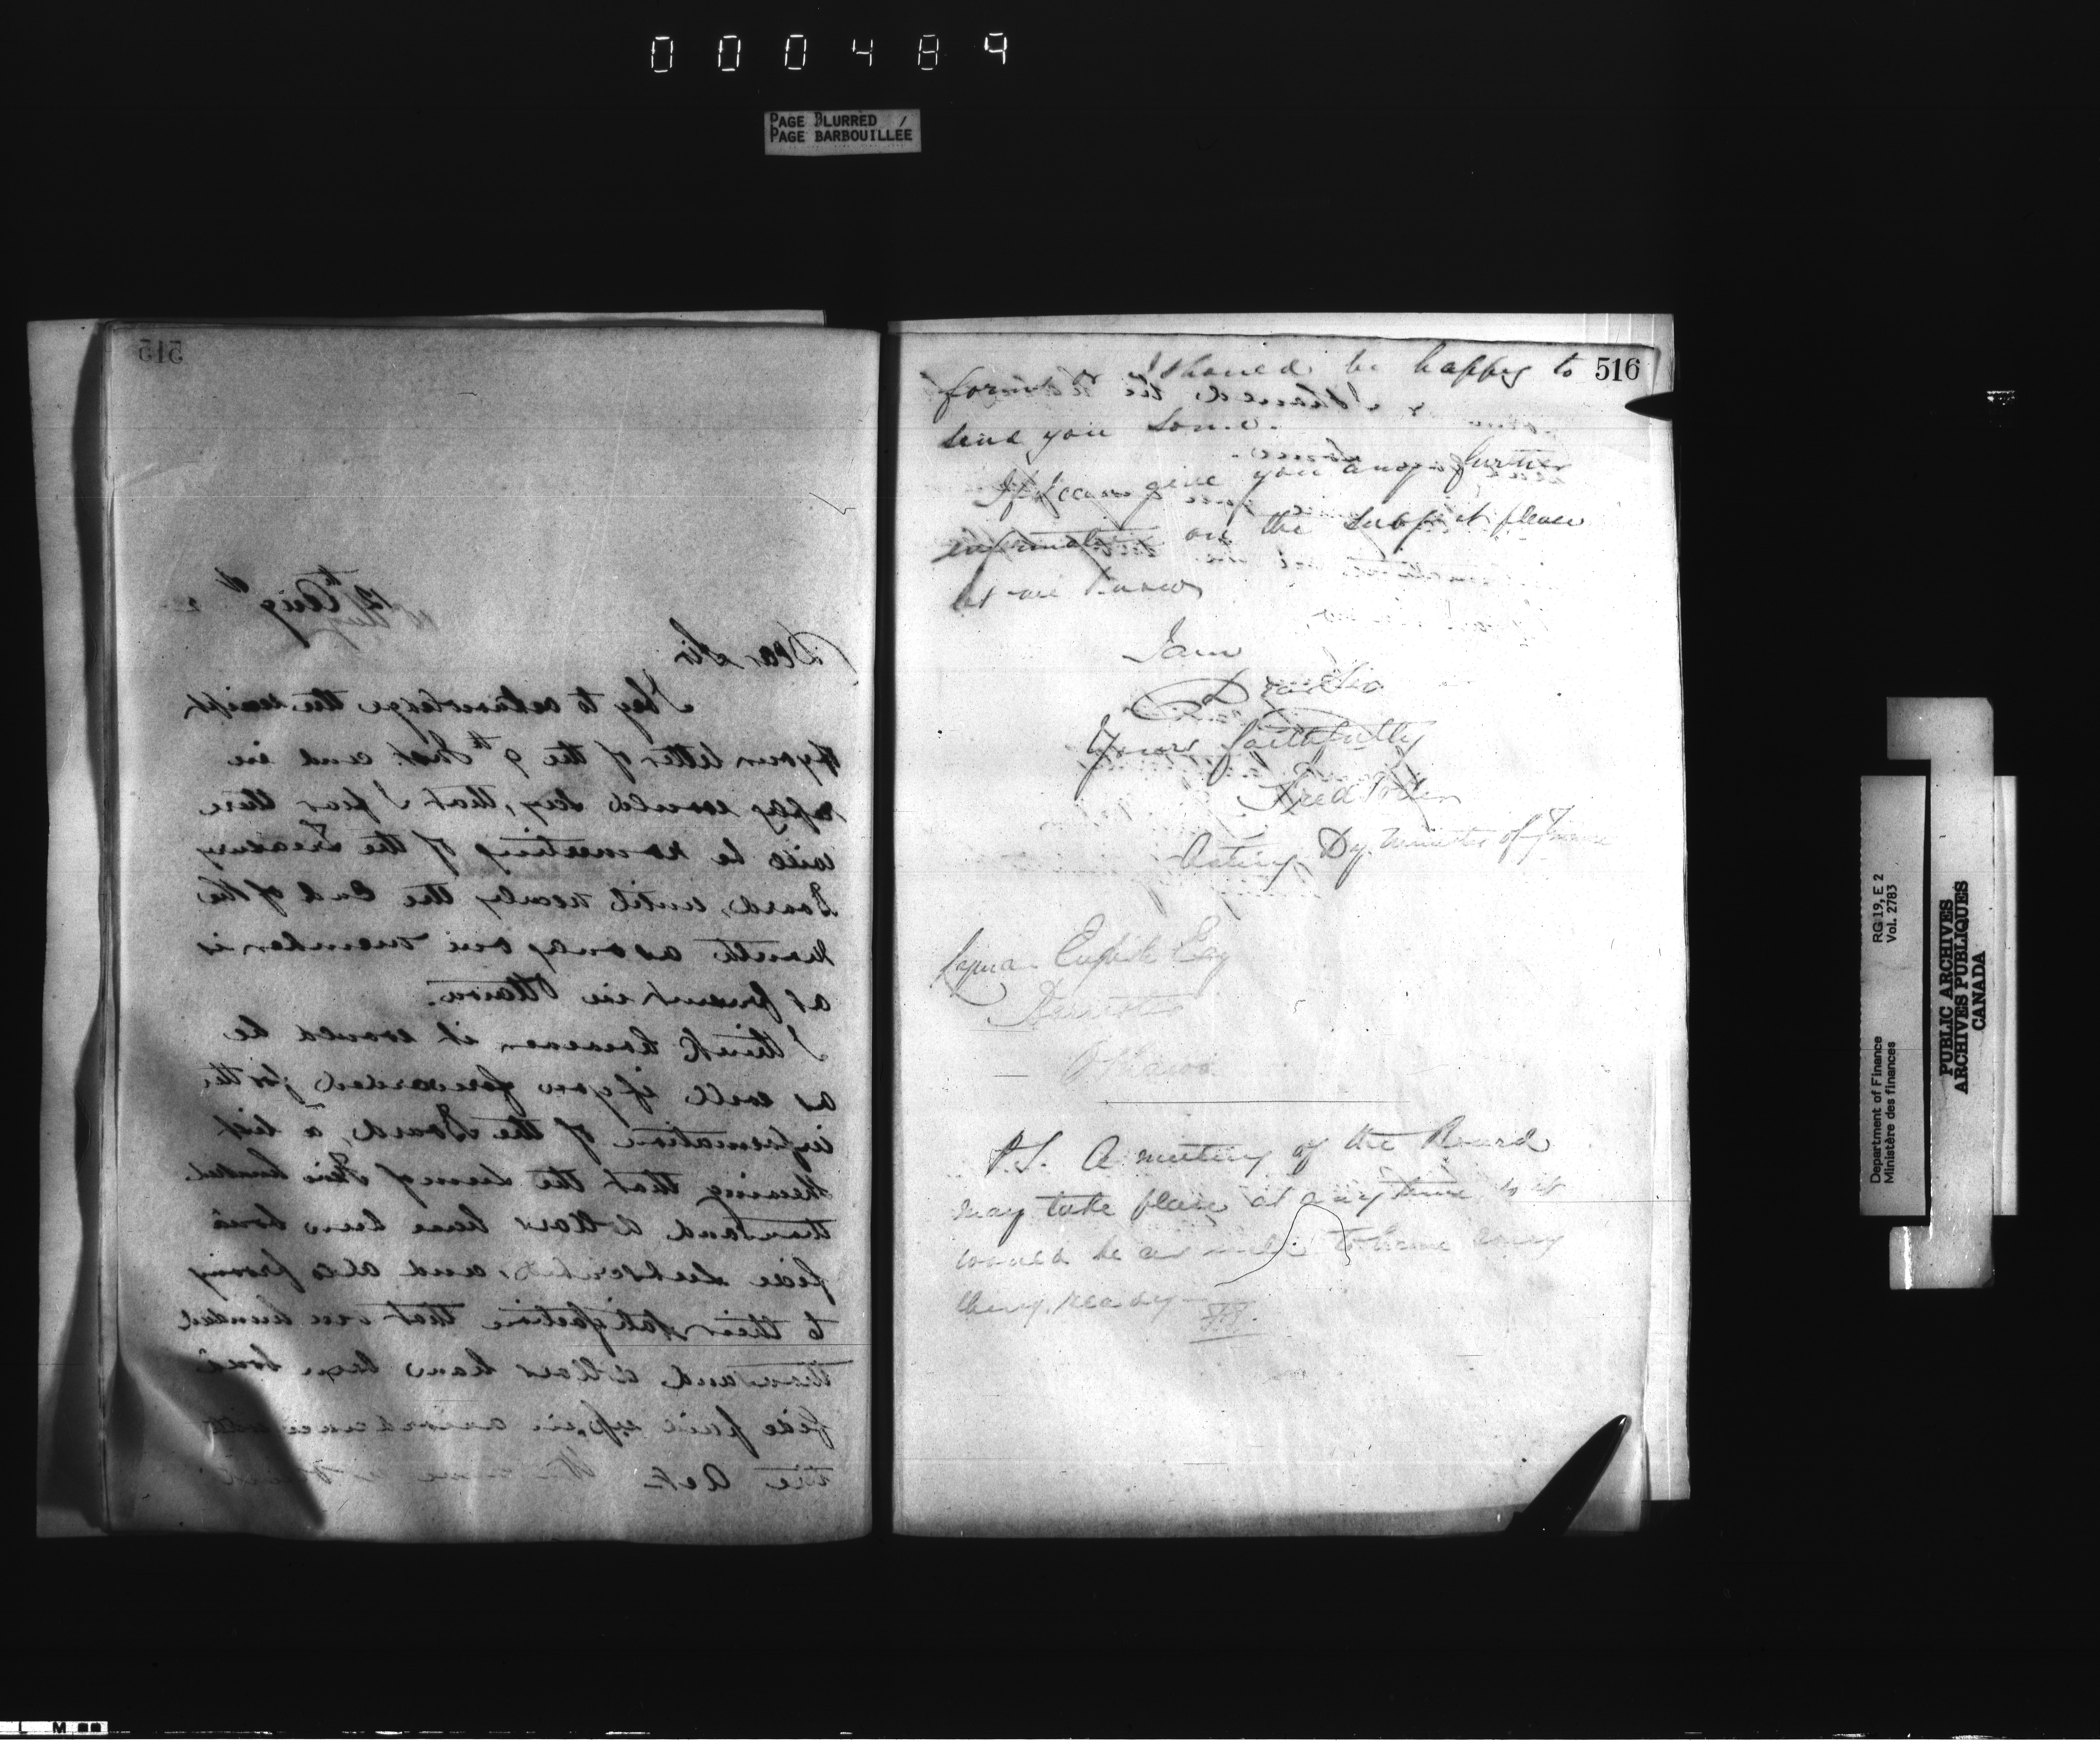 000489
PAGE BLURRED
PAGE BARBOUILLÉE
515
12th Augt
Dear Sir
I beg to acknowledge the receipt
of your letter of the 9th Inst and in
reply would say, that I fear there
will be no meeting of the Treasury
Board, until nearly the End of the
Month as only one member is
at present in Ottawa.
I think however it would be
as well if you forwarded for the
information of the Board, a list
shewing that the sum of five hundred
thousand dollars have been bonâ
fide subscribed, and also proving
to their satisfaction that one hundred
thousand dollars have been bonâ
fide paid up, in accordance with
the Act.
516
forms & I should be happy to
send you some.
If I can give you any further
information on the subject please
let me know
I am
Dear Sir
Yours faithfully
Fred
Acting Dy Minister of Finance
Esq
Barrister
Ottawa
P.S. A meeting of the Board
may take place at any time so it
would be as well to have every
thing ready
Department of Finance RG 19, E 2
Ministère des finances Vol. 2783
PUBLIC ARCHIVES
ARCHIVES PUBLIQUES
CANADA